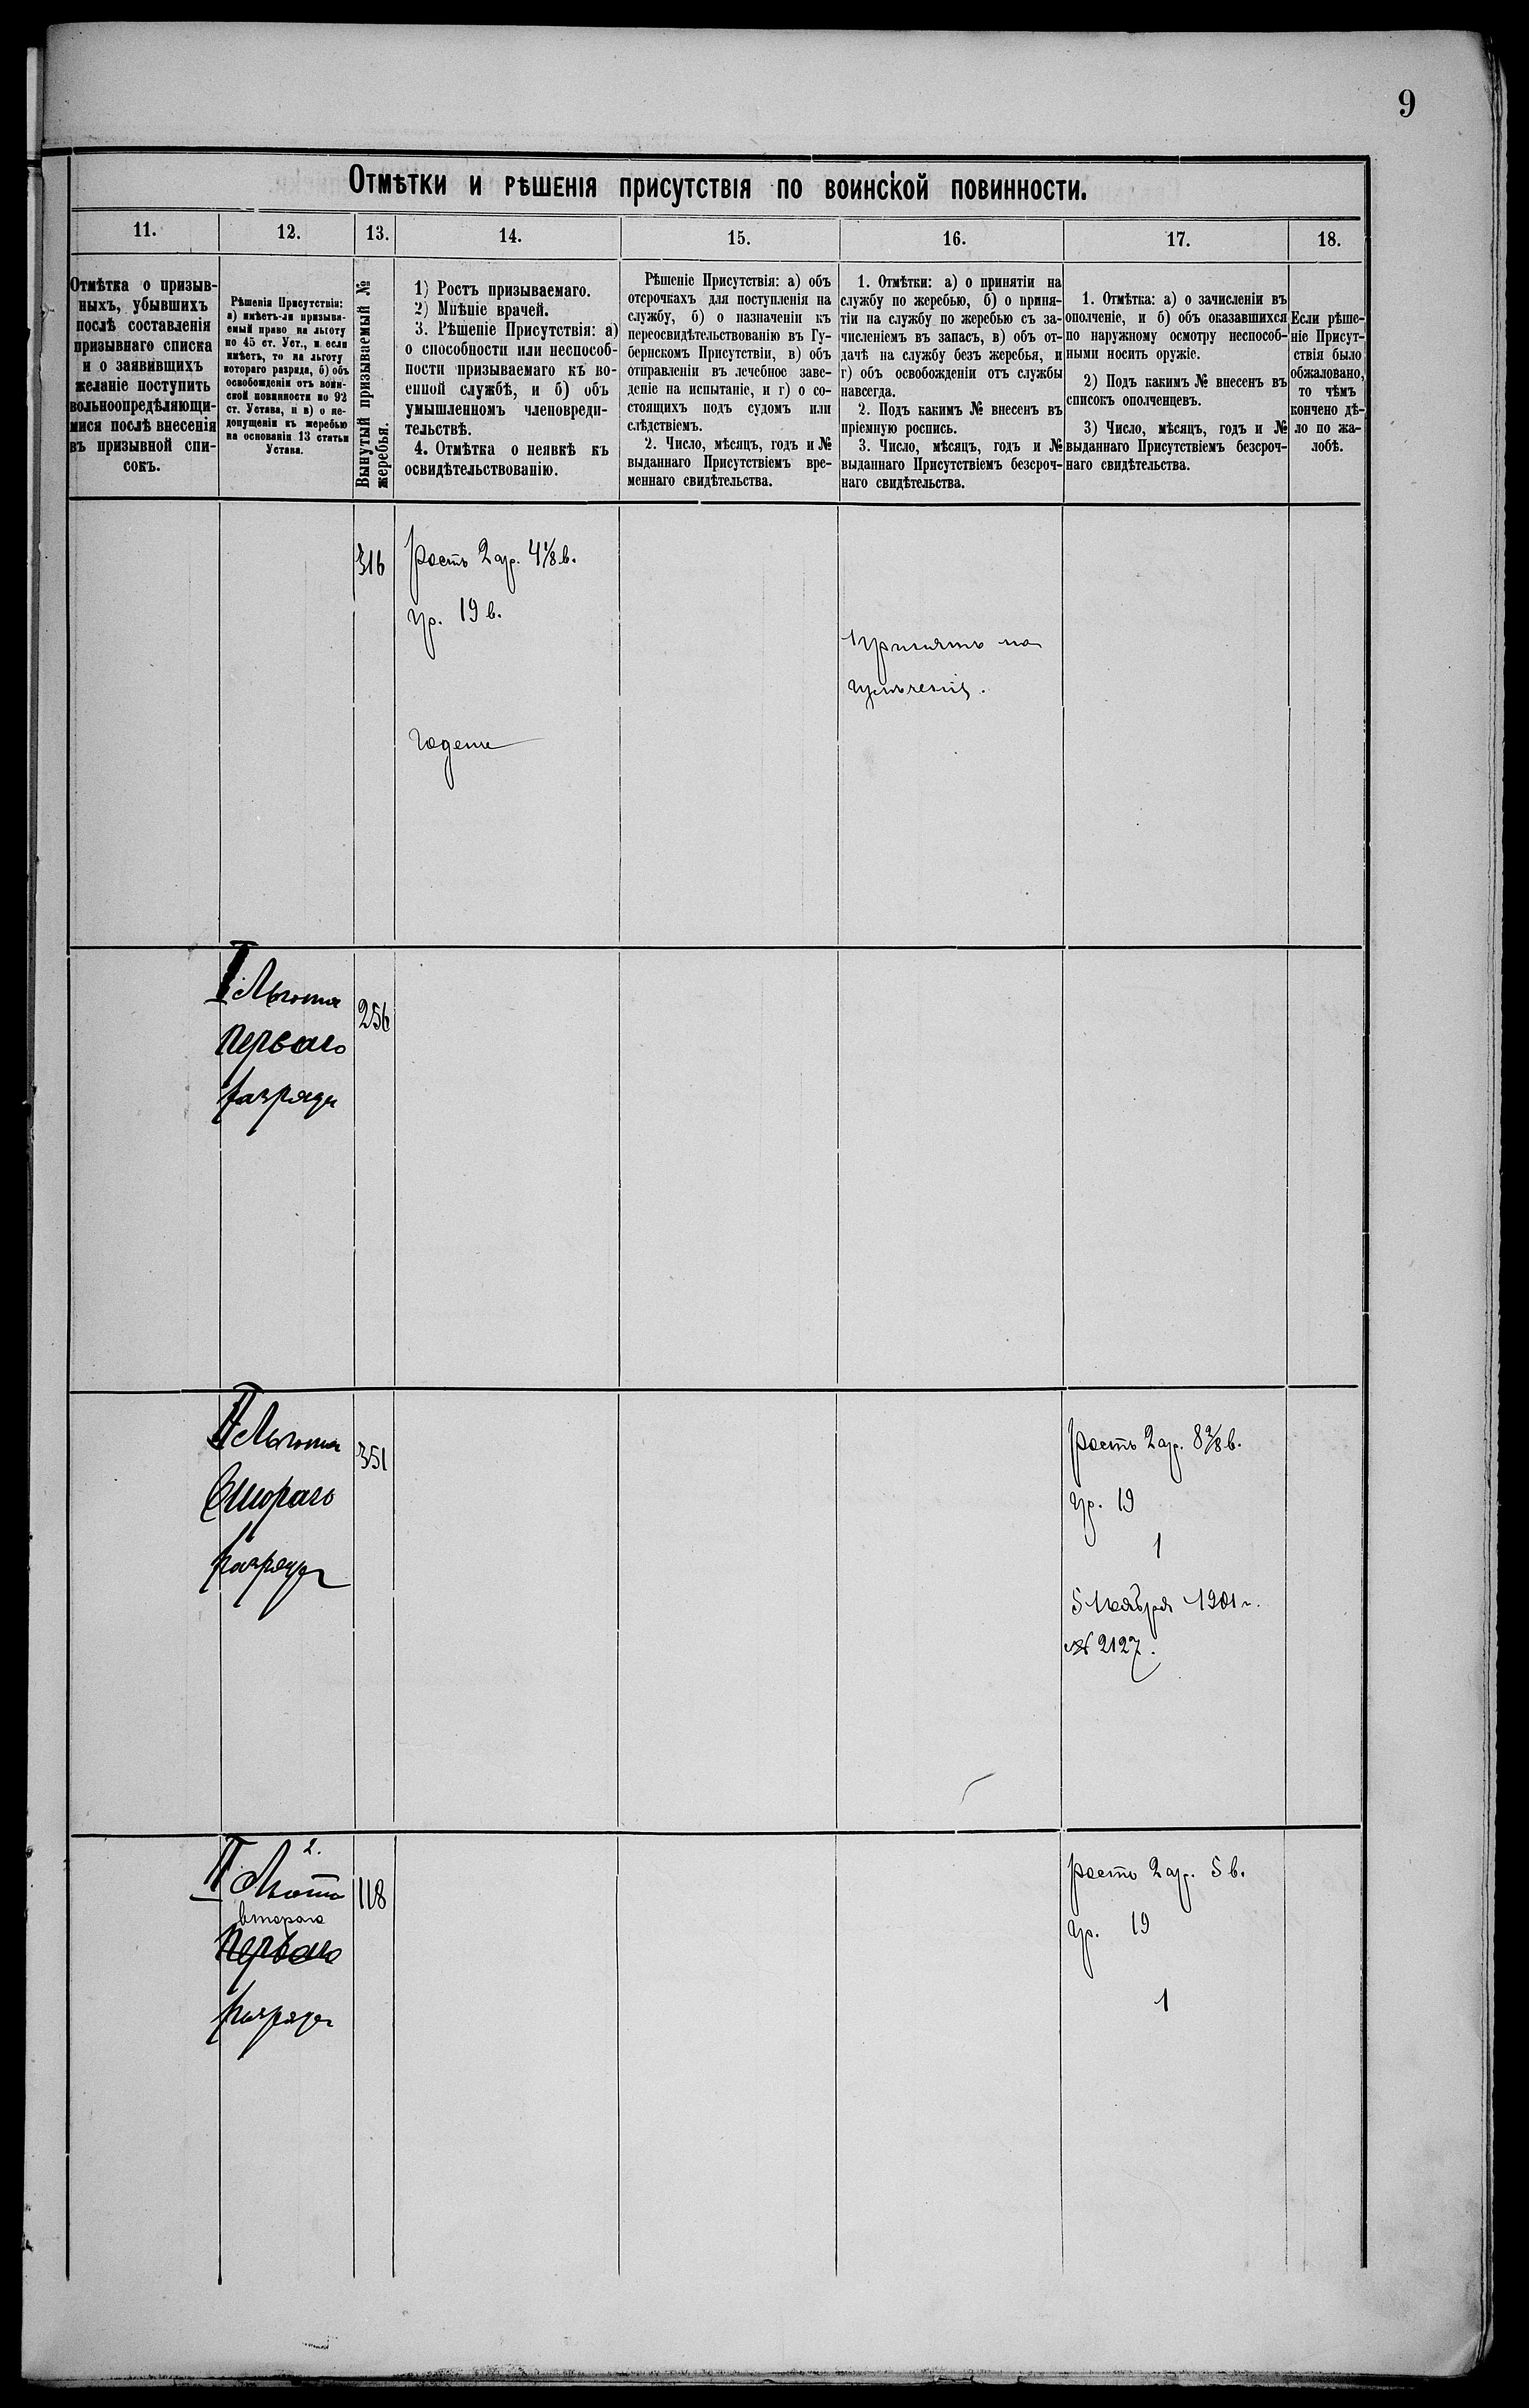 9
Отмѣтки и рѣшенія присутствія по воинской повинности.
11.
12.
13.
14.
15.
16.
17.
18.
Отмѣтка о призыв-
ныхъ, убывшихъ
послѣ составленія
призывнаго списка
и о заявившихъ
желаніе поступить
вольноопредѣляющи-
мися послѣ внесенія
въ призывной спи-
сокъ.
Рѣшенія Присутствія:
а) имѣетъ-ли призыва-
емый право на льготу
по 45 ст. Уст., и если
имѣетъ, то на льготу
котораго разряда, б) объ
освобожденіи отъ воин-
ской повинности по 92
ст. Устава, и в) о не-
допущеніи къ жеребью
на основаніи 13 статьи
Устава.
Вынутый призываемый №
жеребья.
1) Ростъ призываемаго.
2) Мнѣніе врачей.
3. Рѣшеніе Присутствія: а)
о способности или неспособ-
ности призываемаго къ во-
енной службѣ, и б) объ
умышленномъ членовреди-
тельствѣ.
4. Отмѣтка о неявкѣ къ
освидѣтельствованію.
Рѣшеніе Присутствія: а) объ
отсрочкахъ для поступленія на
службу, б) о назначеніи къ
переосвидѣтельствованію въ Гу-
бернскомъ Присутствіи, в) объ
отправленіи въ лечебное заве-
деніе на испытаніе, и г) о со-
стоящихъ подъ судомъ или
слѣдствіемъ.
2. Число, мѣсяцъ, годъ и №
выданнаго Присутствіемъ вре-
меннаго свидѣтельства.
1. Отмѣтки: а) о принятіи на
службу по жеребью, б) о приня-
тіи на службу по жеребью съ за-
численіемъ въ запасъ, в) объ от-
дачѣ на службу безъ жеребья, и
г) объ освобожденіи отъ службы
навсегда.
2. Подъ какимъ № внесенъ въ
пріемную роспись.
3. Число, мѣсяцъ, годъ и №
выданнаго Присутствіемъ безсроч-
наго свидѣтельства.
1. Отмѣтка: а) о зачисленіи въ
ополченіе, и б) объ оказавшихся
по наружному осмотру неспособ-
ными носить оружіе.
2) Подъ какимъ № внесенъ въ
списокъ ополченцевъ.
3) Число, мѣсяцъ, годъ и №
выданнаго Присутствіемъ безсроч-
наго свидѣтельства.
Если рѣше-
ніе Присут-
ствія было
обжаловано,
то чѣмъ
кончено дѣ-
ло по жа-
лобѣ.
316
ростъ 2 ар. 4 1/8 в.
гр. 19 в.
годенъ
принятъ на
256
I Льгота
перваго
разряда
II Льгота
Втораго
разряда
351
ростъ 2 ар. 8 2/8 в.
гр. 19
1
5 Ноября 1901 г.
№ 2127.
2.
II Льгота
втораго
перваго
разряда
118
ростъ 2 ар. 5 в.
гр. 19
1